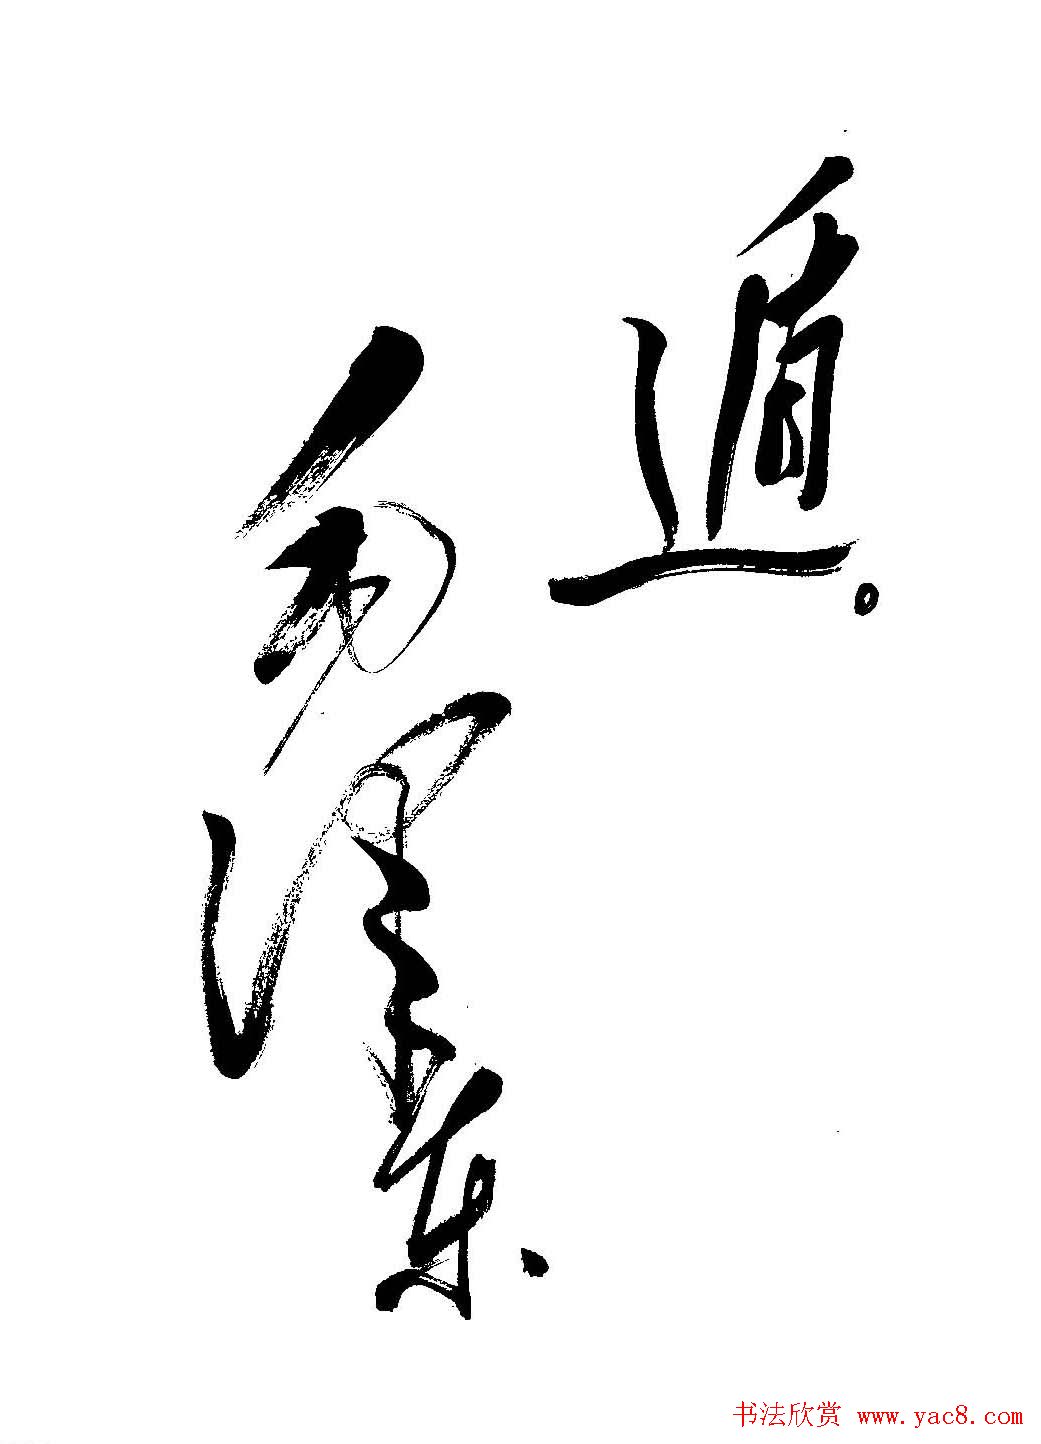 遁。
毛泽东
书法欣赏 www.yac8.com